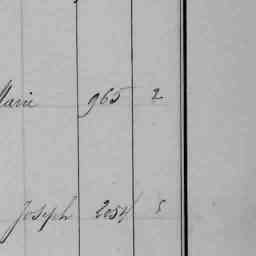 Marie 965 2
Joseph 2054 5